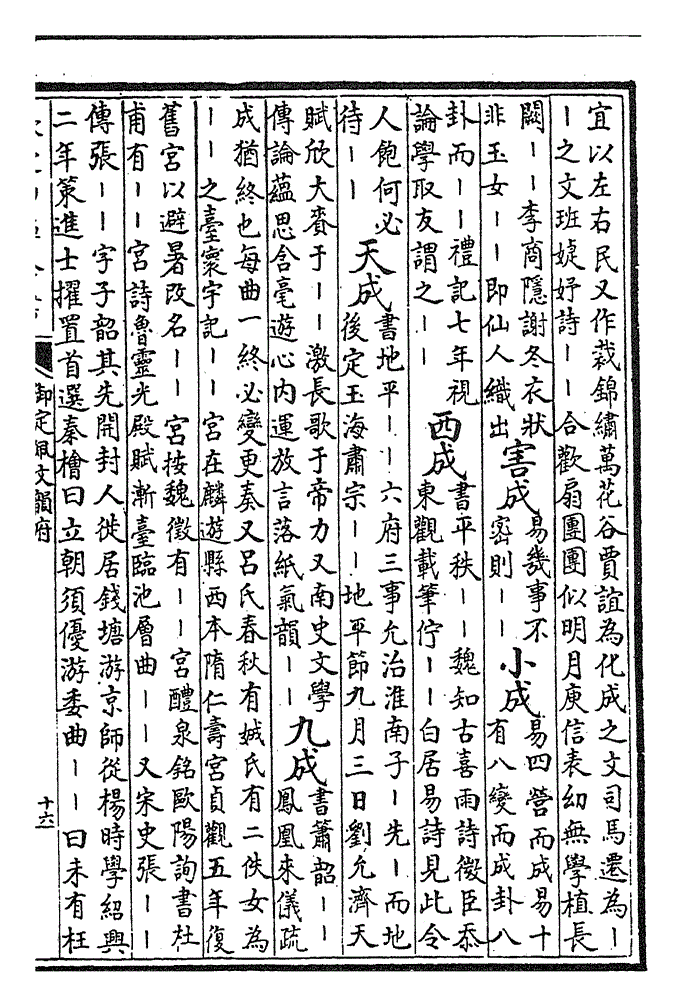 宜以左右民又作裁錦繡萬花谷賈誼為化成之文司馬遷為丨
丨之文班婕妤詩丨丨合歡扇團團似明月庾信表幼無學植長
闕丨丨李商隱謝冬衣狀
非玉女丨丨即仙人織出
害成
易幾事不
密則丨丨
小成
易四營而成易十
有八變而成卦八
卦而丨丨禮記七年視
論學取友謂之丨丨
西成
書平秩丨丨魏知古喜雨詩微臣忝
東觀載筆佇丨丨白居易詩見此令
人飽何必
待丨丨
天成
書地平丨丨六府三事允治淮南子丨先丨而地
後定玉海肅宗丨丨地平節九月三日劉允濟天
賦欣大賚于丨丨激長歌于帝力又南史文學
傳論蘊思含毫遊心内運放言落紙氣韻丨丨
九成
書簫韶丨丨
鳳凰來儀疏
成猶終也每曲一終必變更奏又呂氏春秋有娀氏有二佚女為
丨丨之臺寰宇記丨丨宮在麟遊縣西本隋仁壽宮貞觀五年復
舊宮以避暑改名丨丨宮按魏徵有丨丨宮醴泉銘歐陽詢書杜
甫有丨丨宮詩魯靈光殿賦漸臺臨池層曲丨丨又宋史張丨丨
傳張丨丨字子韶其先開封人徙居錢塘游京師從楊時學紹興
二年策進士擢置首選秦檜曰立朝須優游委曲丨丨曰未有枉
御定佩文韻府
十六